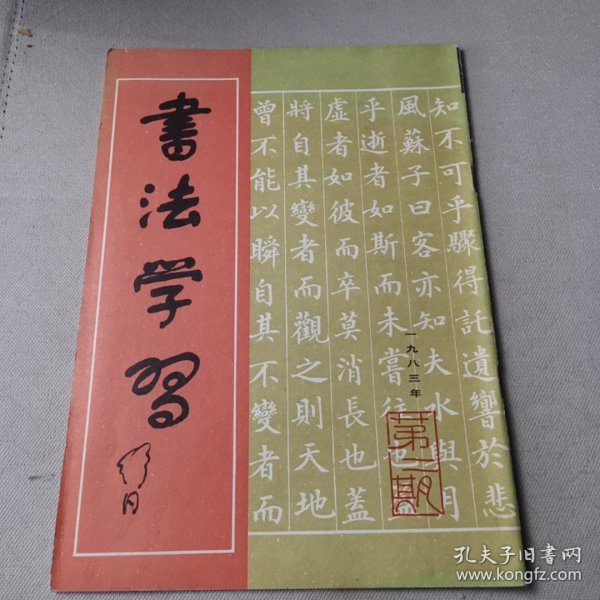 書法学習
知不可乎驟得託遺響於悲
風蘇子曰客亦知夫水與月
乎逝者如斯而未嘗往也盈
虛者如彼而卒莫消長也蓋
將自其變者而觀之則天地
曾不能以瞬自其不變者而
一九八三年
第一期
孔夫子旧书网
www.kongfz.com